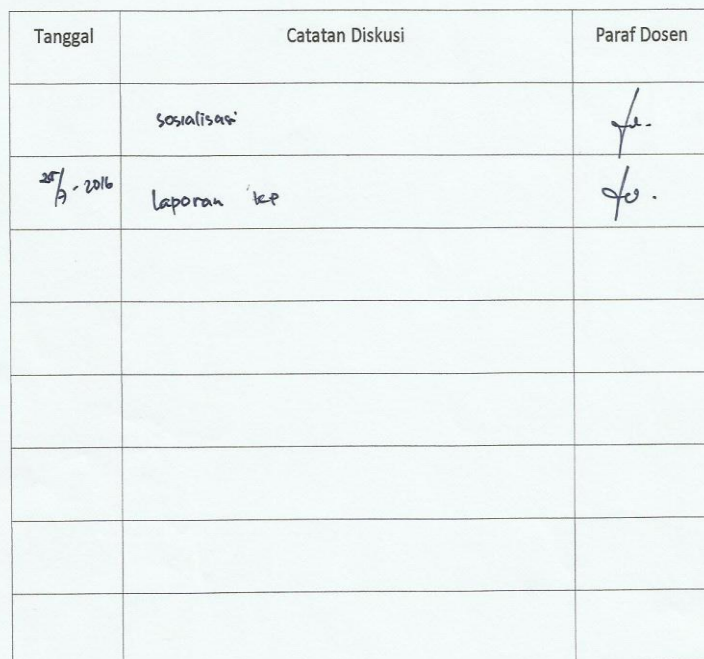 Tanggal Catatan Diskusi Paraf Dosen
sosialisasi
25/7 - 2016 laporan kp